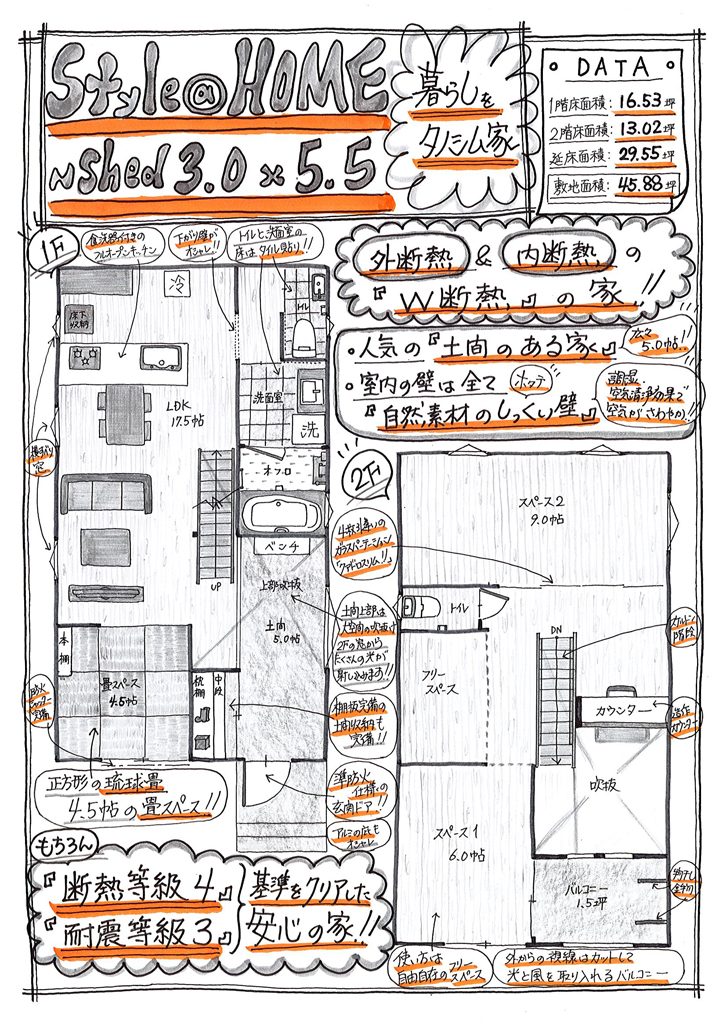 Style@HOME
~Shed 3.0×5.5
暮らしを
タノシム家
DATA
1階床面積: 16.53坪
2階床面積: 13.02坪
延床面積: 29.55坪
敷地面積: 45.88坪
1F
食洗器付きの
フルオープンキッチン
下がり壁が
オシャレ!!
トイレと洗面室の
床はタイル貼り!!
外断熱 & 内断熱 の
『W断熱』の家!!
・人気の『土間のある家』
広々
5.0帖!!
・室内の壁は全て
『自然素材のしっくい壁』
調湿
空気清浄効果で
空気がさわやか!!
冷
床下
収納
LDK
17.5帖
トイレ
洗面室
洗
オフロ
ベンチ
UP
上部吹抜
土間
5.0帖
本棚
畳スペース
4.5帖
枕棚
中段
2F
4枚引違いの
ガラスパーテーション
土間上部は
大空間の吹抜け
2Fの窓から
たくさんの光が
射し込みます!!
棚板完備の
土間収納も
完備!!
準防火
仕様の
玄関ドア!!
アルミの庇も
オシャレ
正方形の琉球畳
4.5帖の畳スペース!!
もちろん
『断熱等級4』
『耐震等級3』
基準をクリアした
安心の家!!
スペース2
9.0帖
トイレ
DN
スケルトン
階段
フリー
スペース
カウンター
造作
カウンター
吹抜
スペース1
6.0帖
バルコニー
1.5坪
物干し
金物
使い方は
自由自在のフリー
スペース
外からの視線はカットして
光と風を取り入れるバルコニー